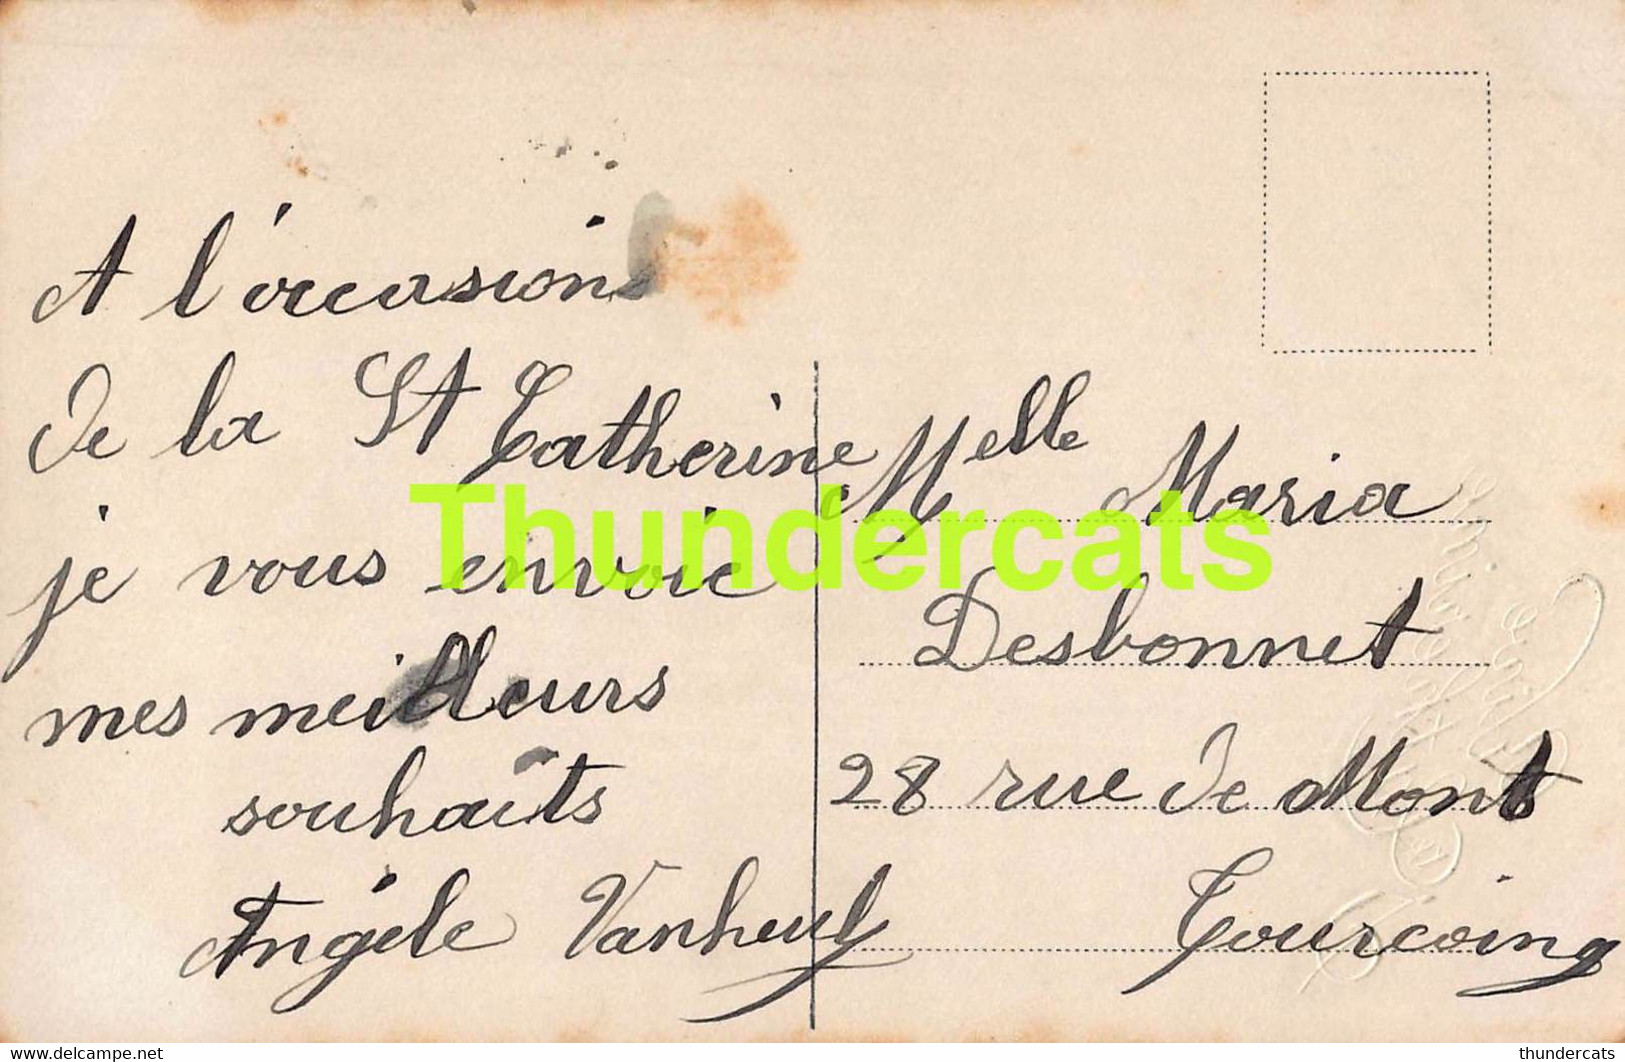 A l'occasion
de la St Catherine
je vous envoie
mes meilleurs
souhaits
Angèle
Melle Maria
Desbonnet
28 rue de Mons
Tourcoing
Thundercats
delcampe.net
thundercats